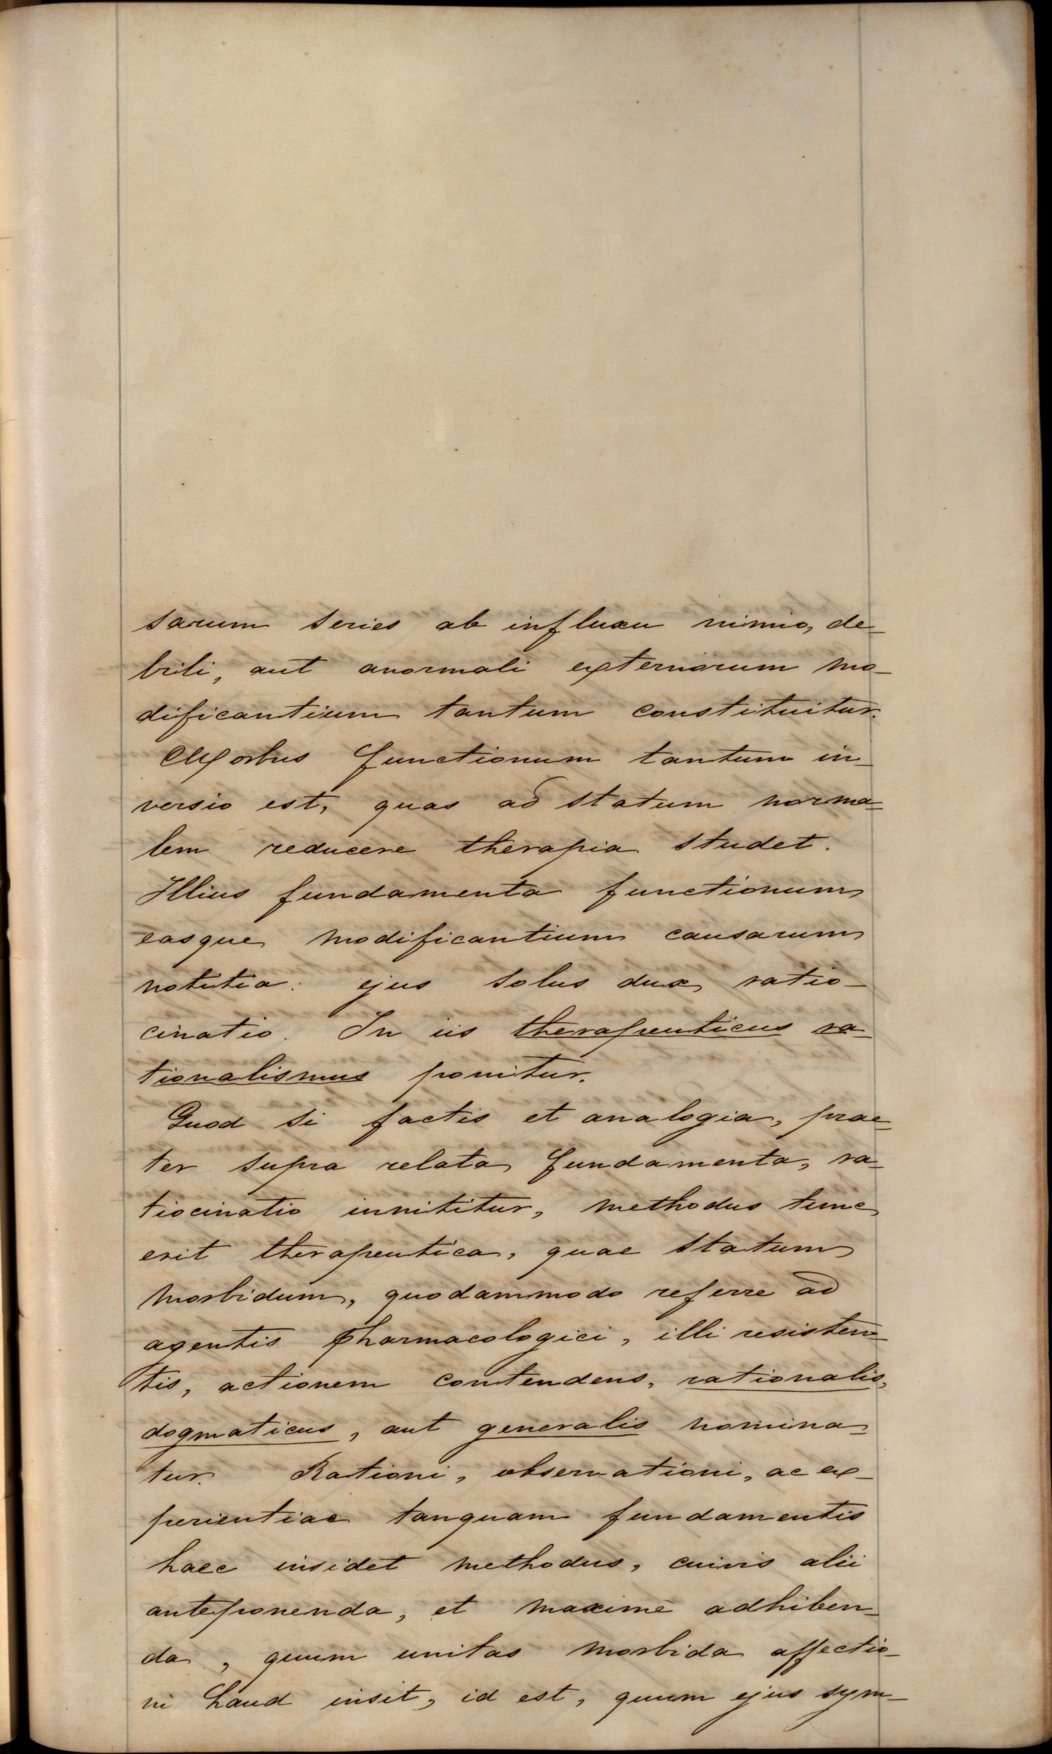 sarum series ab influxu nimio, de-
bili, aut anormali externorum mo-
dificantium tantum constituitur.
Morbus functionum tantum in-
versio est, quas ad statum norma-
lem reducere therapia studet.
Illius fundamenta functionum
easque modificantium causarum
notitia: ejus solus dux ratio-
cinatio. In iis therapeuticus ra-
tionalismus ponitur.
Quod si factis et analogia, prae-
ter supra relata fundamenta, ra-
tiocinatio innititur, methodus tunc
erit therapeutica, quae statum
morbidum, quodammodo referre ad
agentis pharmacologici, illi resisten-
tis, actionem contendens, rationalis,
dogmaticus, aut generalis nomina-
tur. Rationi, observationi, ac ex-
perientiae tanquam fundamentis
haec insidet methodus, cuivis alii
anteponenda, et maxime adhiben-
da, quum unitas morbida affectio-
ni haud insit, id est, quum ejus sym-